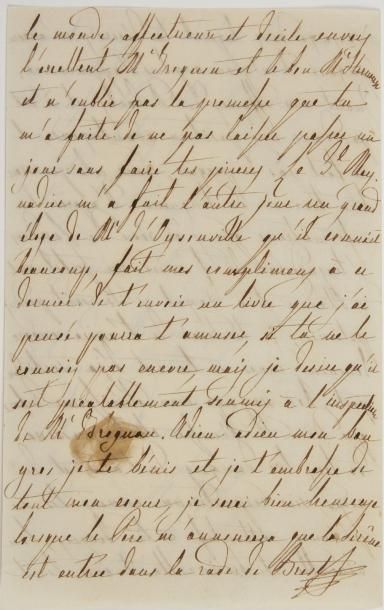 le monde, affectueux et docile envers
l'excellent Mr Trognon et le bon Mr
et n'oublie pas la promesse que tu
m'a faite de ne pas laisser passer un
jour sans faire tes prieres, Je
m'a fait l'autre jour un grand
éloge de Mr d'Oysonville qu'il connait
beaucoup, fait mes complimens à ce
dernier, Je t'envoie un livre que j'ai
pensé pourra t'amuser, si tu ne le
connois pas encore mais je desire qu'il
soit préalablement soumis à l'inspection
de Mr Trognon. Adieu adieu mon bon
gros je te bénis et je t'embrasse de
tout mon coeur, je serai bien heureuse
lorsque le Pere m'annoncera que la Sirène
est entrée dans la rade de Brest